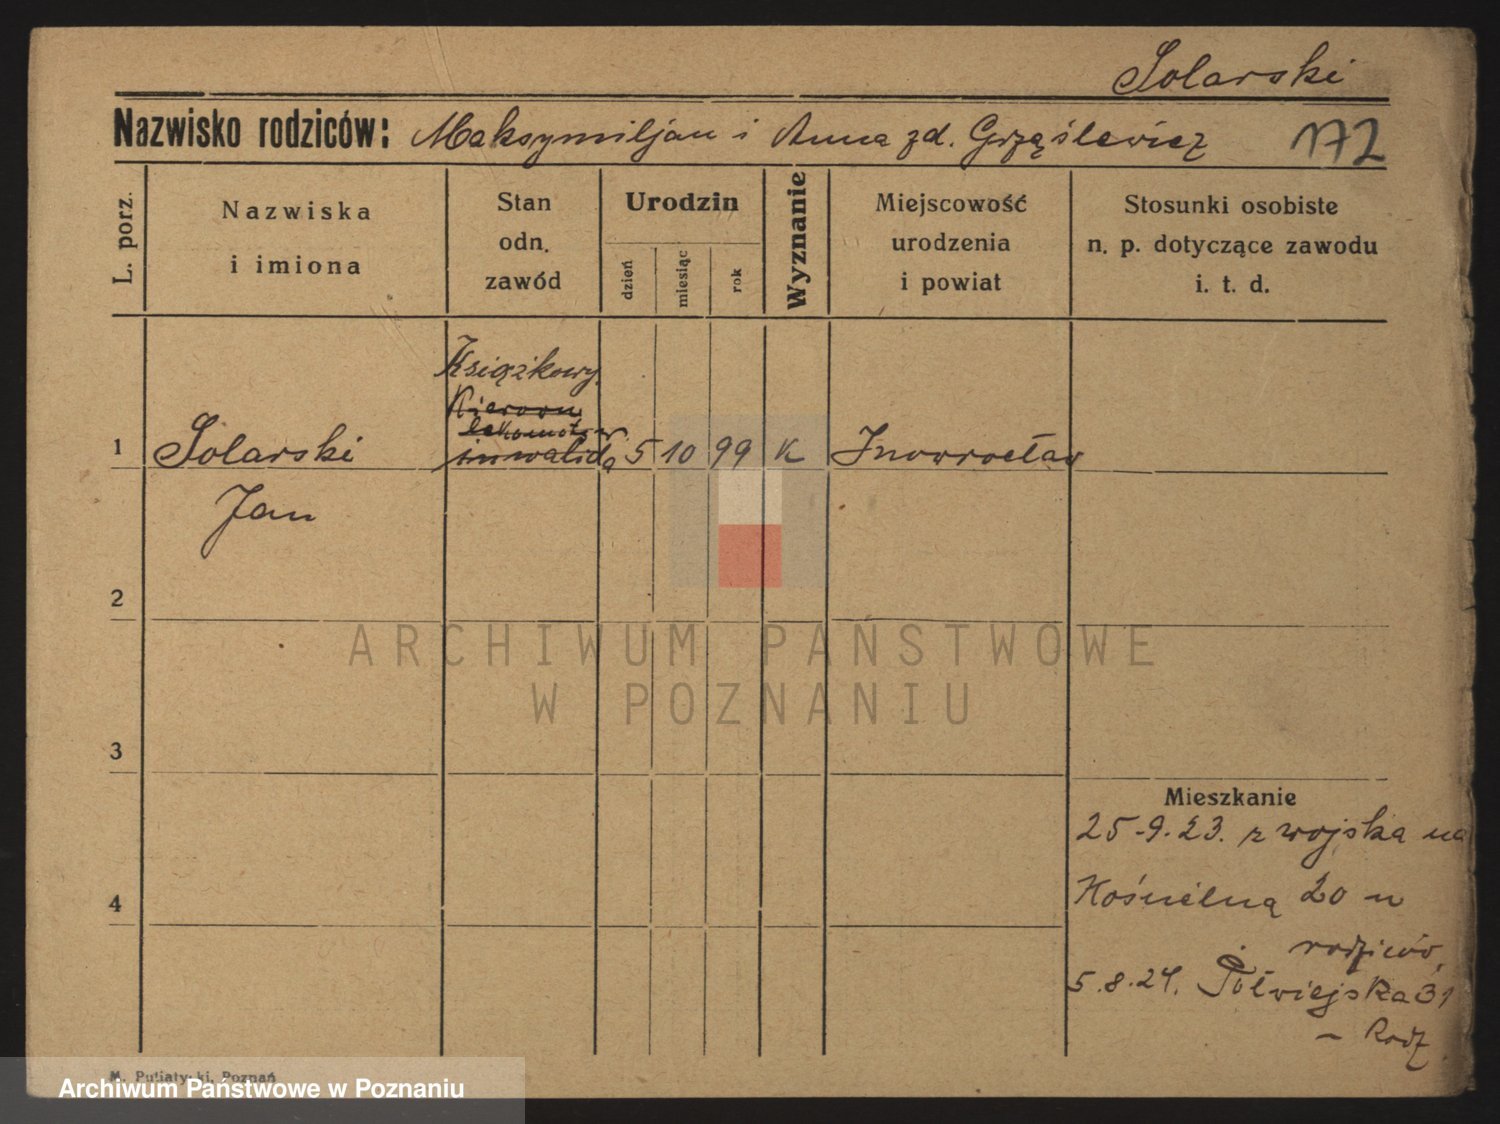 Solarski
Nazwisko rodziców: Maksymiljan i Anna zd. Grząślewicz 172
L. porz.
Nazwiska
i imiona
Stan
odn.
zawód
Urodzin
dzień
miesiąc
rok
Wyznanie
Miejscowość
urodzenia
i powiat
Stosunki osobiste
n. p. dotyczące zawodu
i. t. d.
Książkowy
inwalida
1 Solarski 5 10 99 K Inowrocław
Jan
2
3
4
Mieszkanie
25-9.23. z wojska na
Kośnielną 20 u
rodziców,
5.8.24. Półwiejska 31
- Rodz
M. Putiatycki, Poznań
ARCHIWUM PAŃSTWOWE
W POZNANIU
Archiwum Państwowe w Poznaniu